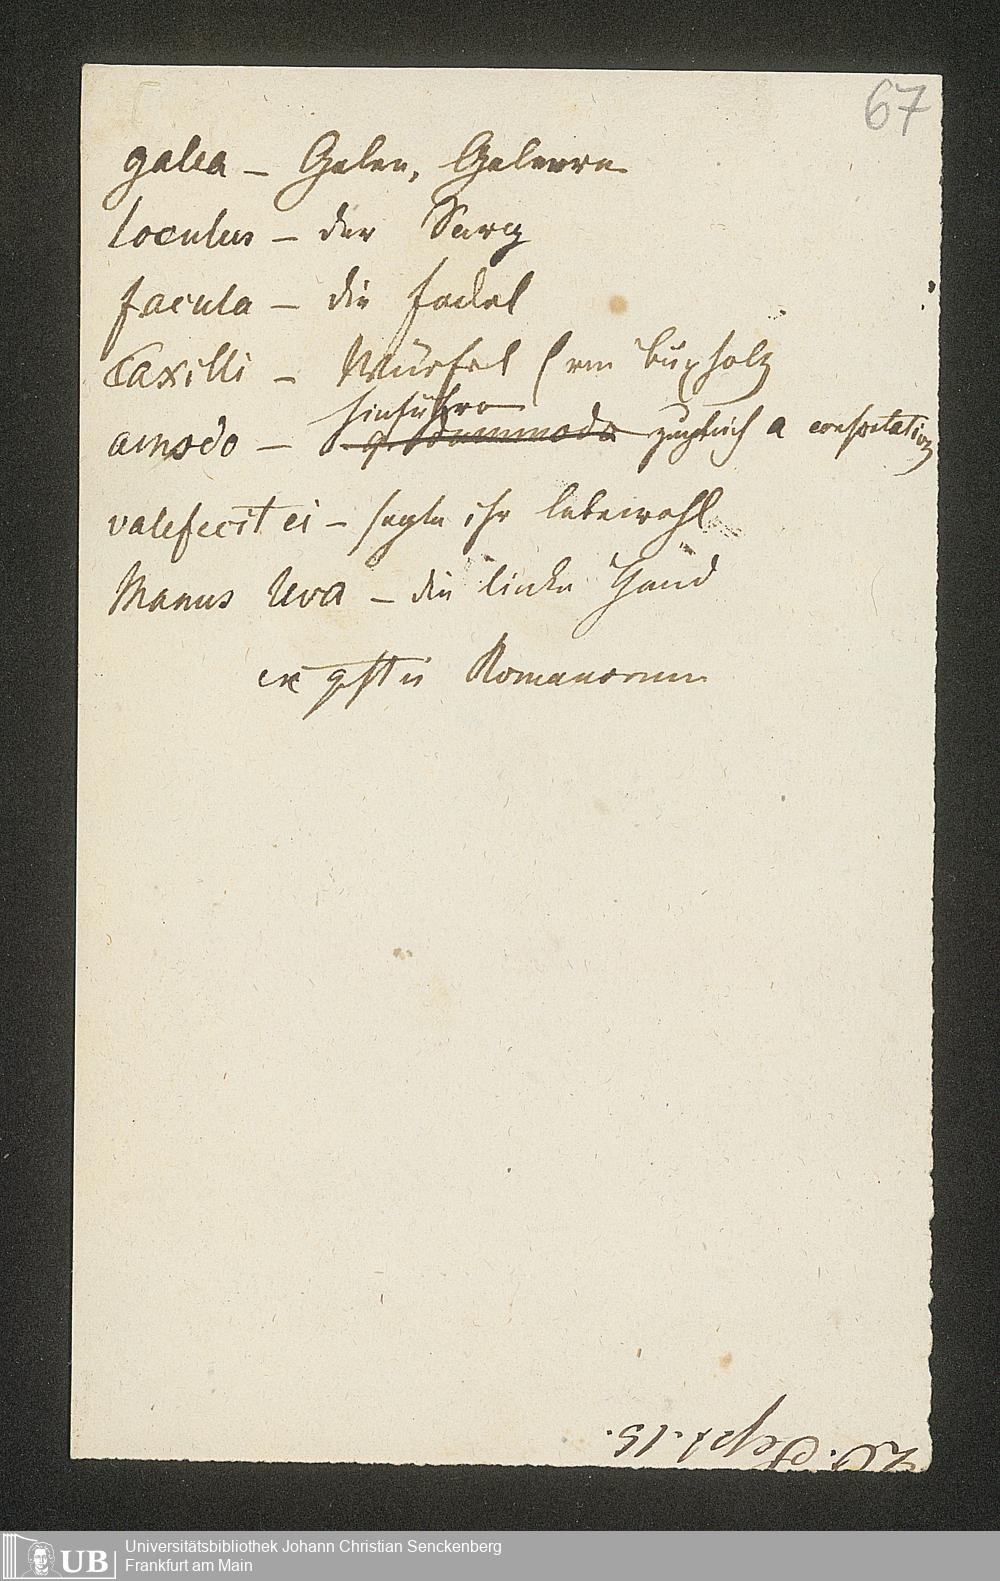 67
galea – Galee, Galeere
loculus – der Sarg
facula – die Fackel
taxilli – Würfel (von buxholz
hinführo
amodo – zugleich a conspetatione
valefecit ei – sagte ihr lebewohl
Manus leva – die linke Hand
ex gestis Romanorum
Sept. 15.
UB
Universitätsbibliothek Johann Christian Senckenberg
Frankfurt am Main